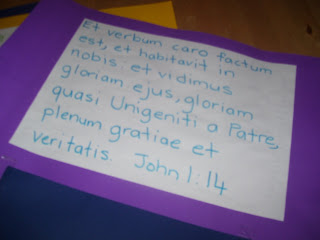 Et verbum caro factum
est, et habitavit in
nobis: et vidimus
gloriam ejus, gloriam
quasi Unigeniti a Patre,
plenum gratiae et
veritatis. John 1:14